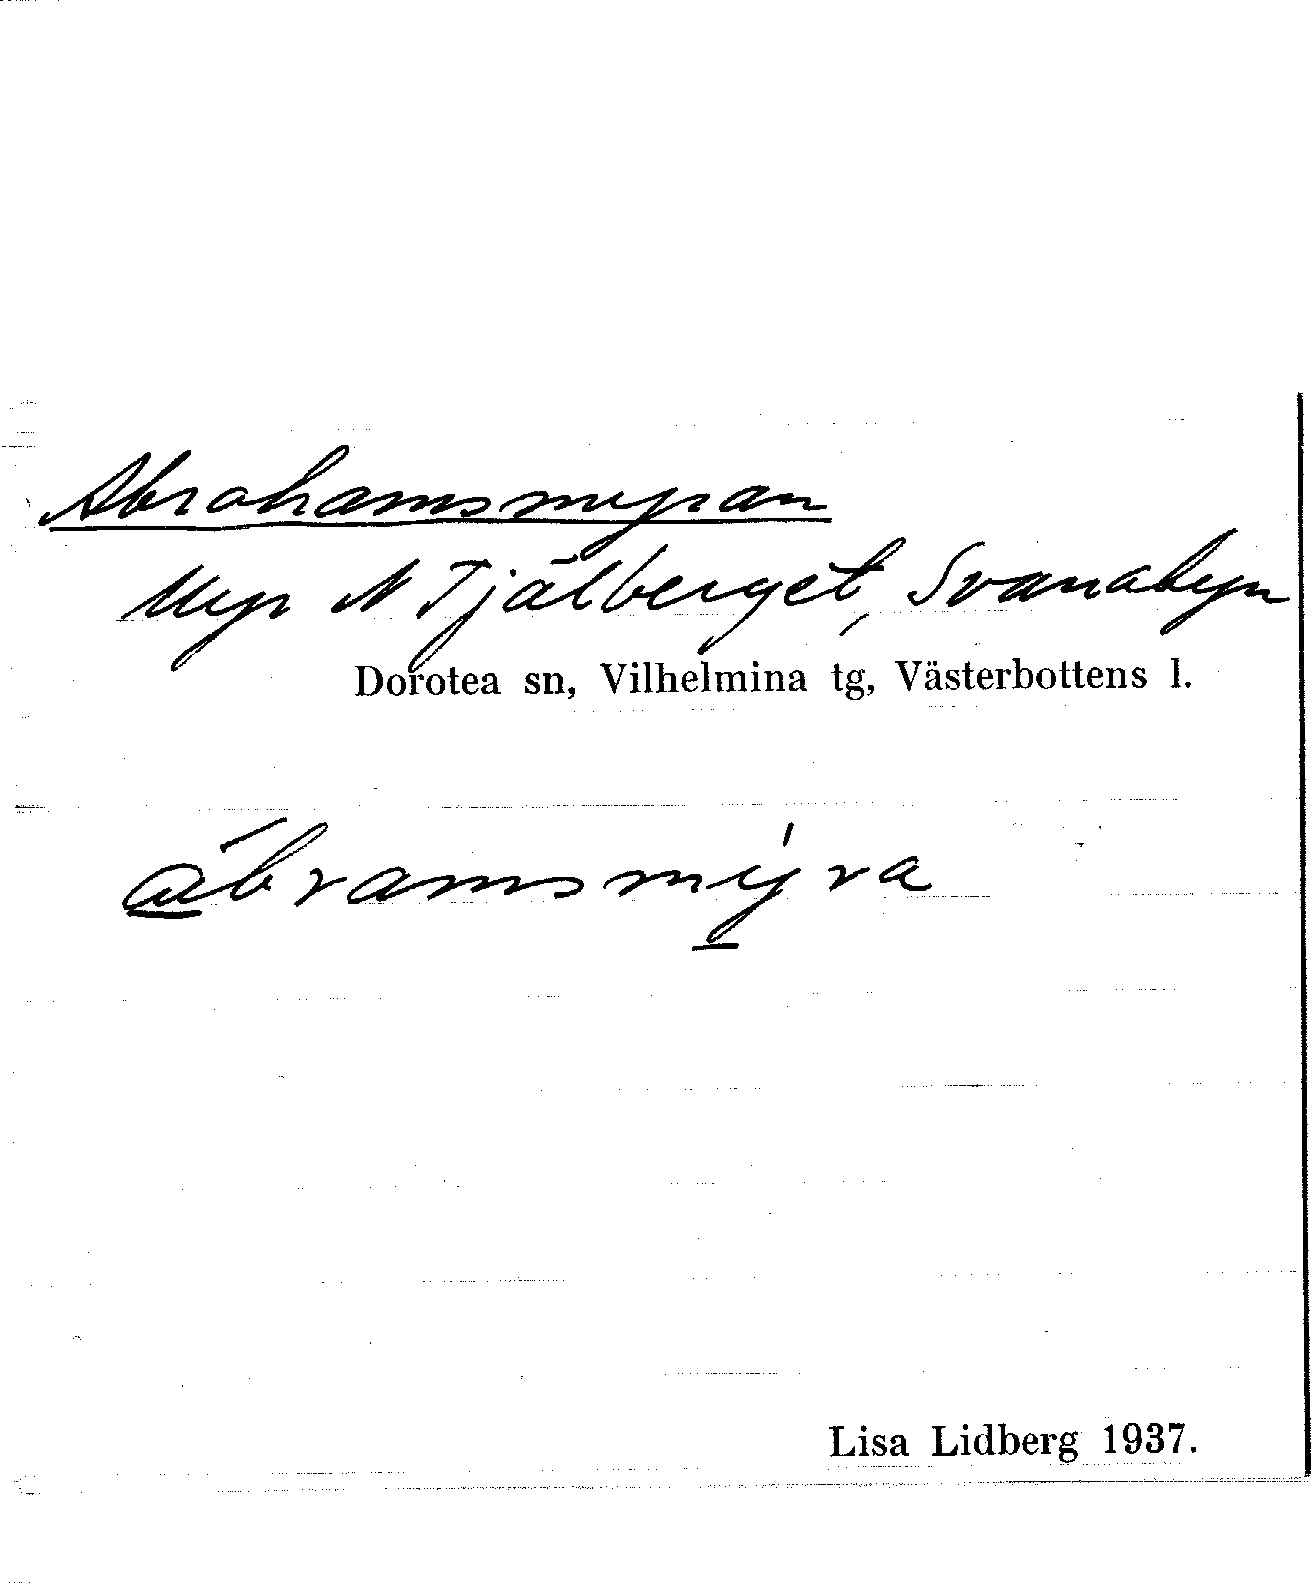 Abrahamsmyran
Myr N Tjälberget, Svanabyn
Dorotea sn, Vilhelmina tg, Västerbottens l.
a̲̅bramsmy̲̍ra
Lisa Lidberg 1937.